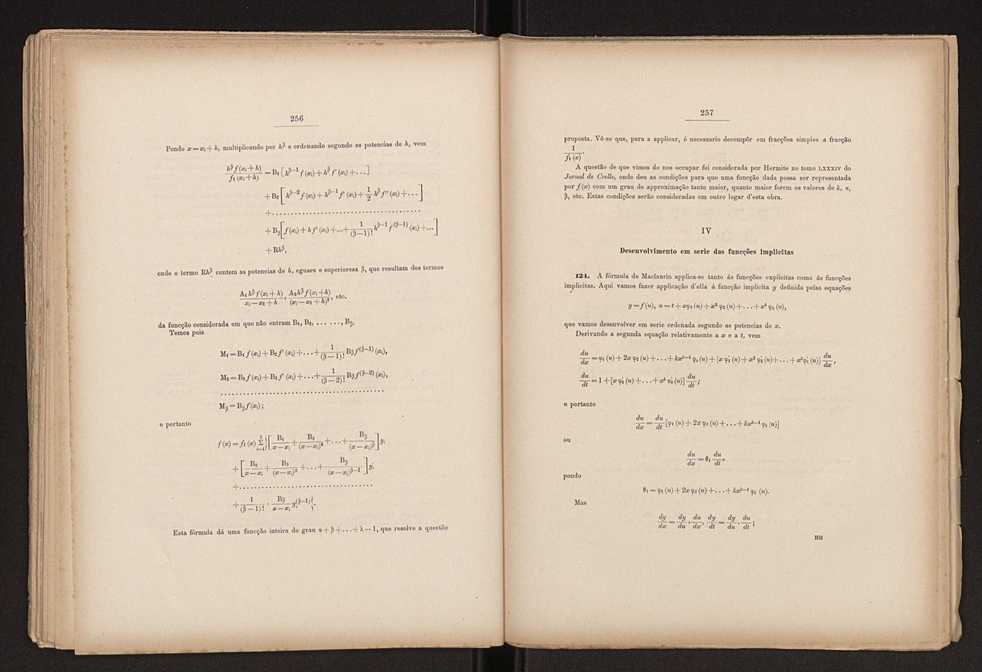 256
Pondo x = xᵢ + h, multiplicando por h^β e ordenando segundo as potencias de h, vem
h^β f(xᵢ + h) / f₁(xᵢ + h) = B₁ [h^{β−1} f(xᵢ) + h^β f'(xᵢ) + . . .]
+ B₂ [h^{β−2} f(xᵢ) + h^{β−1} f'(xᵢ) + 1/2 h^β f''(xᵢ) + . . .]
+ . . . . . . . . . . . . . . . . . . . . . . . . . . . . . .
+ B_β [f(xᵢ) + h f'(xᵢ) + . . . + 1/(β−1)! h^{β−1} f^{(β−1)}(xᵢ) + . . .]
+ Rh^β,
onde o termo Rh^β contem as potencias de h, eguaes e superiores a β, que resultam dos termos
A₁ h^β f(xᵢ + h) / (xᵢ − x₁ + h), A₂ h^β f(xᵢ + h) / (xᵢ − x₁ + h)², etc.
da funcção considerada em que não entram B₁, B₂, . . . . . ., B_β.
Temos pois
M₁ = B₁ f(xᵢ) + B₂ f'(xᵢ) + . . . + 1/(β−1)! B_β f^{(β−1)}(xᵢ),
M₂ = B₂ f(xᵢ) + B₃ f'(xᵢ) + . . . + 1/(β−2)! B_β f^{(β−2)}(xᵢ),
. . . . . . . . . . . . . . . . . . . . . . . . . . . . . . . . . .
M_β = B_β f(xᵢ);
e portanto
f(x) = f₁(x) Σ { [B₁/(x − xᵢ) + B₂/(x − xᵢ)² + . . . + B_β/(x − xᵢ)^β] yᵢ
+ [B₂/(x − xᵢ) + B₃/(x − xᵢ)² + . . . + B_β/(x − xᵢ)^{β−1}] y'ᵢ
+ . . . . . . . . . . . . . . . . . . . . . . . . . . . .
+ 1/(β−1)! · B_β/(x − xᵢ) yᵢ^{(β−1)} }.
Esta fórmula dá uma funcção inteira do grau α + β + . . . + λ − 1, que resolve a questão
257
proposta. Vê-se que, para a applicar, é necessario decompôr em fracções simples a fracção
1 / f₁(x).
A questão de que vimos de nos occupar foi considerada por Hermite no tomo LXXXIV do
Jornal de Crelle, onde deu as condições para que uma funcção dada possa ser representada
por f(x) com um grau de approximação tanto maior, quanto maior forem os valores de k, α,
β, etc. Estas condições serão consideradas em outro logar d'esta obra.
IV
Desenvolvimento em serie das funcções implicitas
124. A fórmula de Maclaurin applica-se tanto ás funcções explicitas como ás funcções
implicitas. Aqui vamos fazer applicação d'ella á funcção implicita y definida pelas equações
y = f(u), u = t + xφ₁(u) + x² φ₂(u) + . . . + xᵏ φₖ(u),
que vamos desenvolver em serie ordenada segundo as potencias de x.
Derivando a segunda equação relativamente a x e a t, vem
du/dx = φ₁(u) + 2x φ₂(u) + . . . + kx^{k−1} φₖ(u) + [x φ'₁(u) + x² φ'₂(u) + . . . + xᵏ φ'ₖ(u)] du/dx,
du/dt = 1 + [x φ'₁(u) + . . . + xᵏ φ'ₖ(u)] du/dt;
e portanto
du/dx = du/dt [φ₁(u) + 2x φ₂(u) + . . . + kx^{k−1} φₖ(u)]
ou
du/dx = θ₁ du/dt,
pondo
θ₁ = φ₁(u) + 2x φ₂(u) + . . . + kx^{k−1} φₖ(u).
Mas
dy/dx = dy/du · du/dx, dy/dt = dy/du · du/dt;
HH